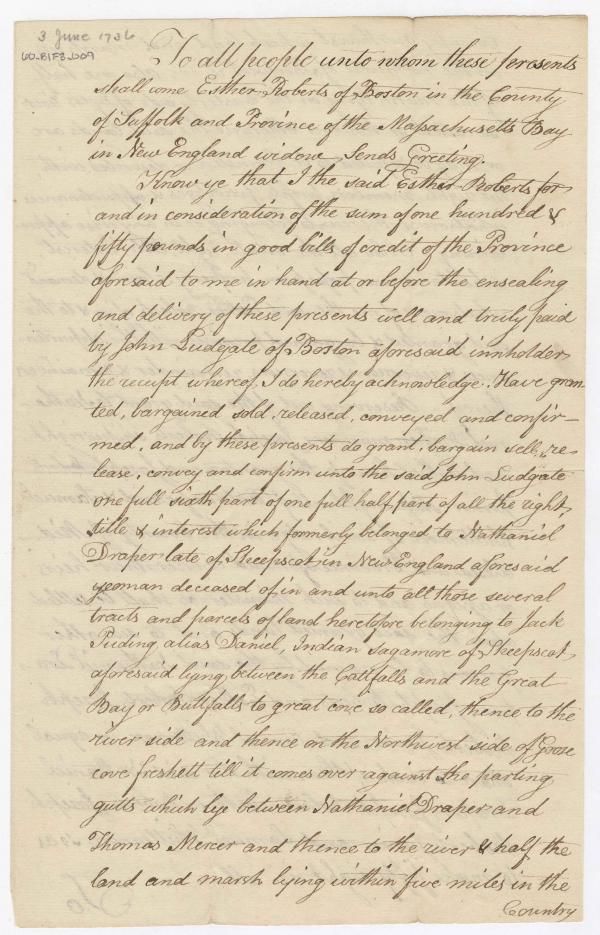 3 June 1736
60-B1F3-009
To all people unto whom these presents
shall come Esther Roberts of Boston in the County
of Suffolk and Province of the Massachusetts Bay
in New England widow Sends Greeting.
Know ye that I the said Esther Roberts for
and in consideration of the sum of one hundred &
fifty pounds in good bills of credit of the Province
aforesaid to me in hand at or before the ensealing
and delivery of these presents well and truly paid
by John Ludgate of Boston aforesaid innholder
the receipt whereof, I do hereby acknowledge. Have gran
ted, bargained sold, released, conveyed and confir-
med, and by these presents do grant, bargain sell, re-
lease, convey and confirm unto the said John Ludgate
one full sixth part of one full half part of all the right,
title & interest which formerly belonged to Nathaniel
Draper late of Sheepscot in New England aforesaid
yeoman deceased of in and unto all those several
tracts and parcels of land heretofore belonging to Jack
Puding, alias Daniel, Indian sagamore of Sheepscot,
aforesaid lying between the Cattfalls and the Great
Bay or Buttfalls to great cove so called, thence to the
river side and thence on the Northwest side of Goose
cove freshett till it comes over against the parting
gutts which lye between Nathaniel Draper and
Thomas Mercer and thence to the river & half the
land and marsh lying within five miles in the
Country